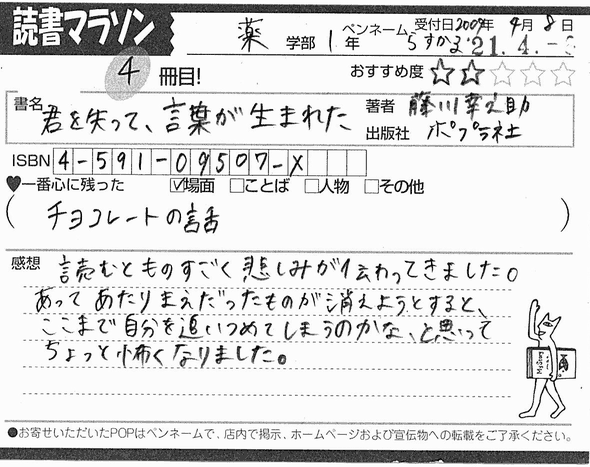 読書マラソン
薬 学部 1 年 ペンネーム らすかる 受付日2009年 4月 8日
21.4.-
4 冊目! おすすめ度 ☆☆☆☆☆
書名 君を失って、言葉が生まれた
著者 藤川幸之助
出版社 ポプラ社
ISBN 4-591-09507-X
♥一番心に残った ☑場面 □ことば □人物 □その他
(チョコレートの話)
感想 読むとものすごく悲しみが伝わってきました。
あってあたりまえだったものが消えようとすると、
ここまで自分を追いつめてしまうのかな、と思って
ちょっと怖くなりました。
●お寄せいただいたPOPはペンネームで、店内で掲示、ホームページおよび宣伝物への転載をご了承ください。